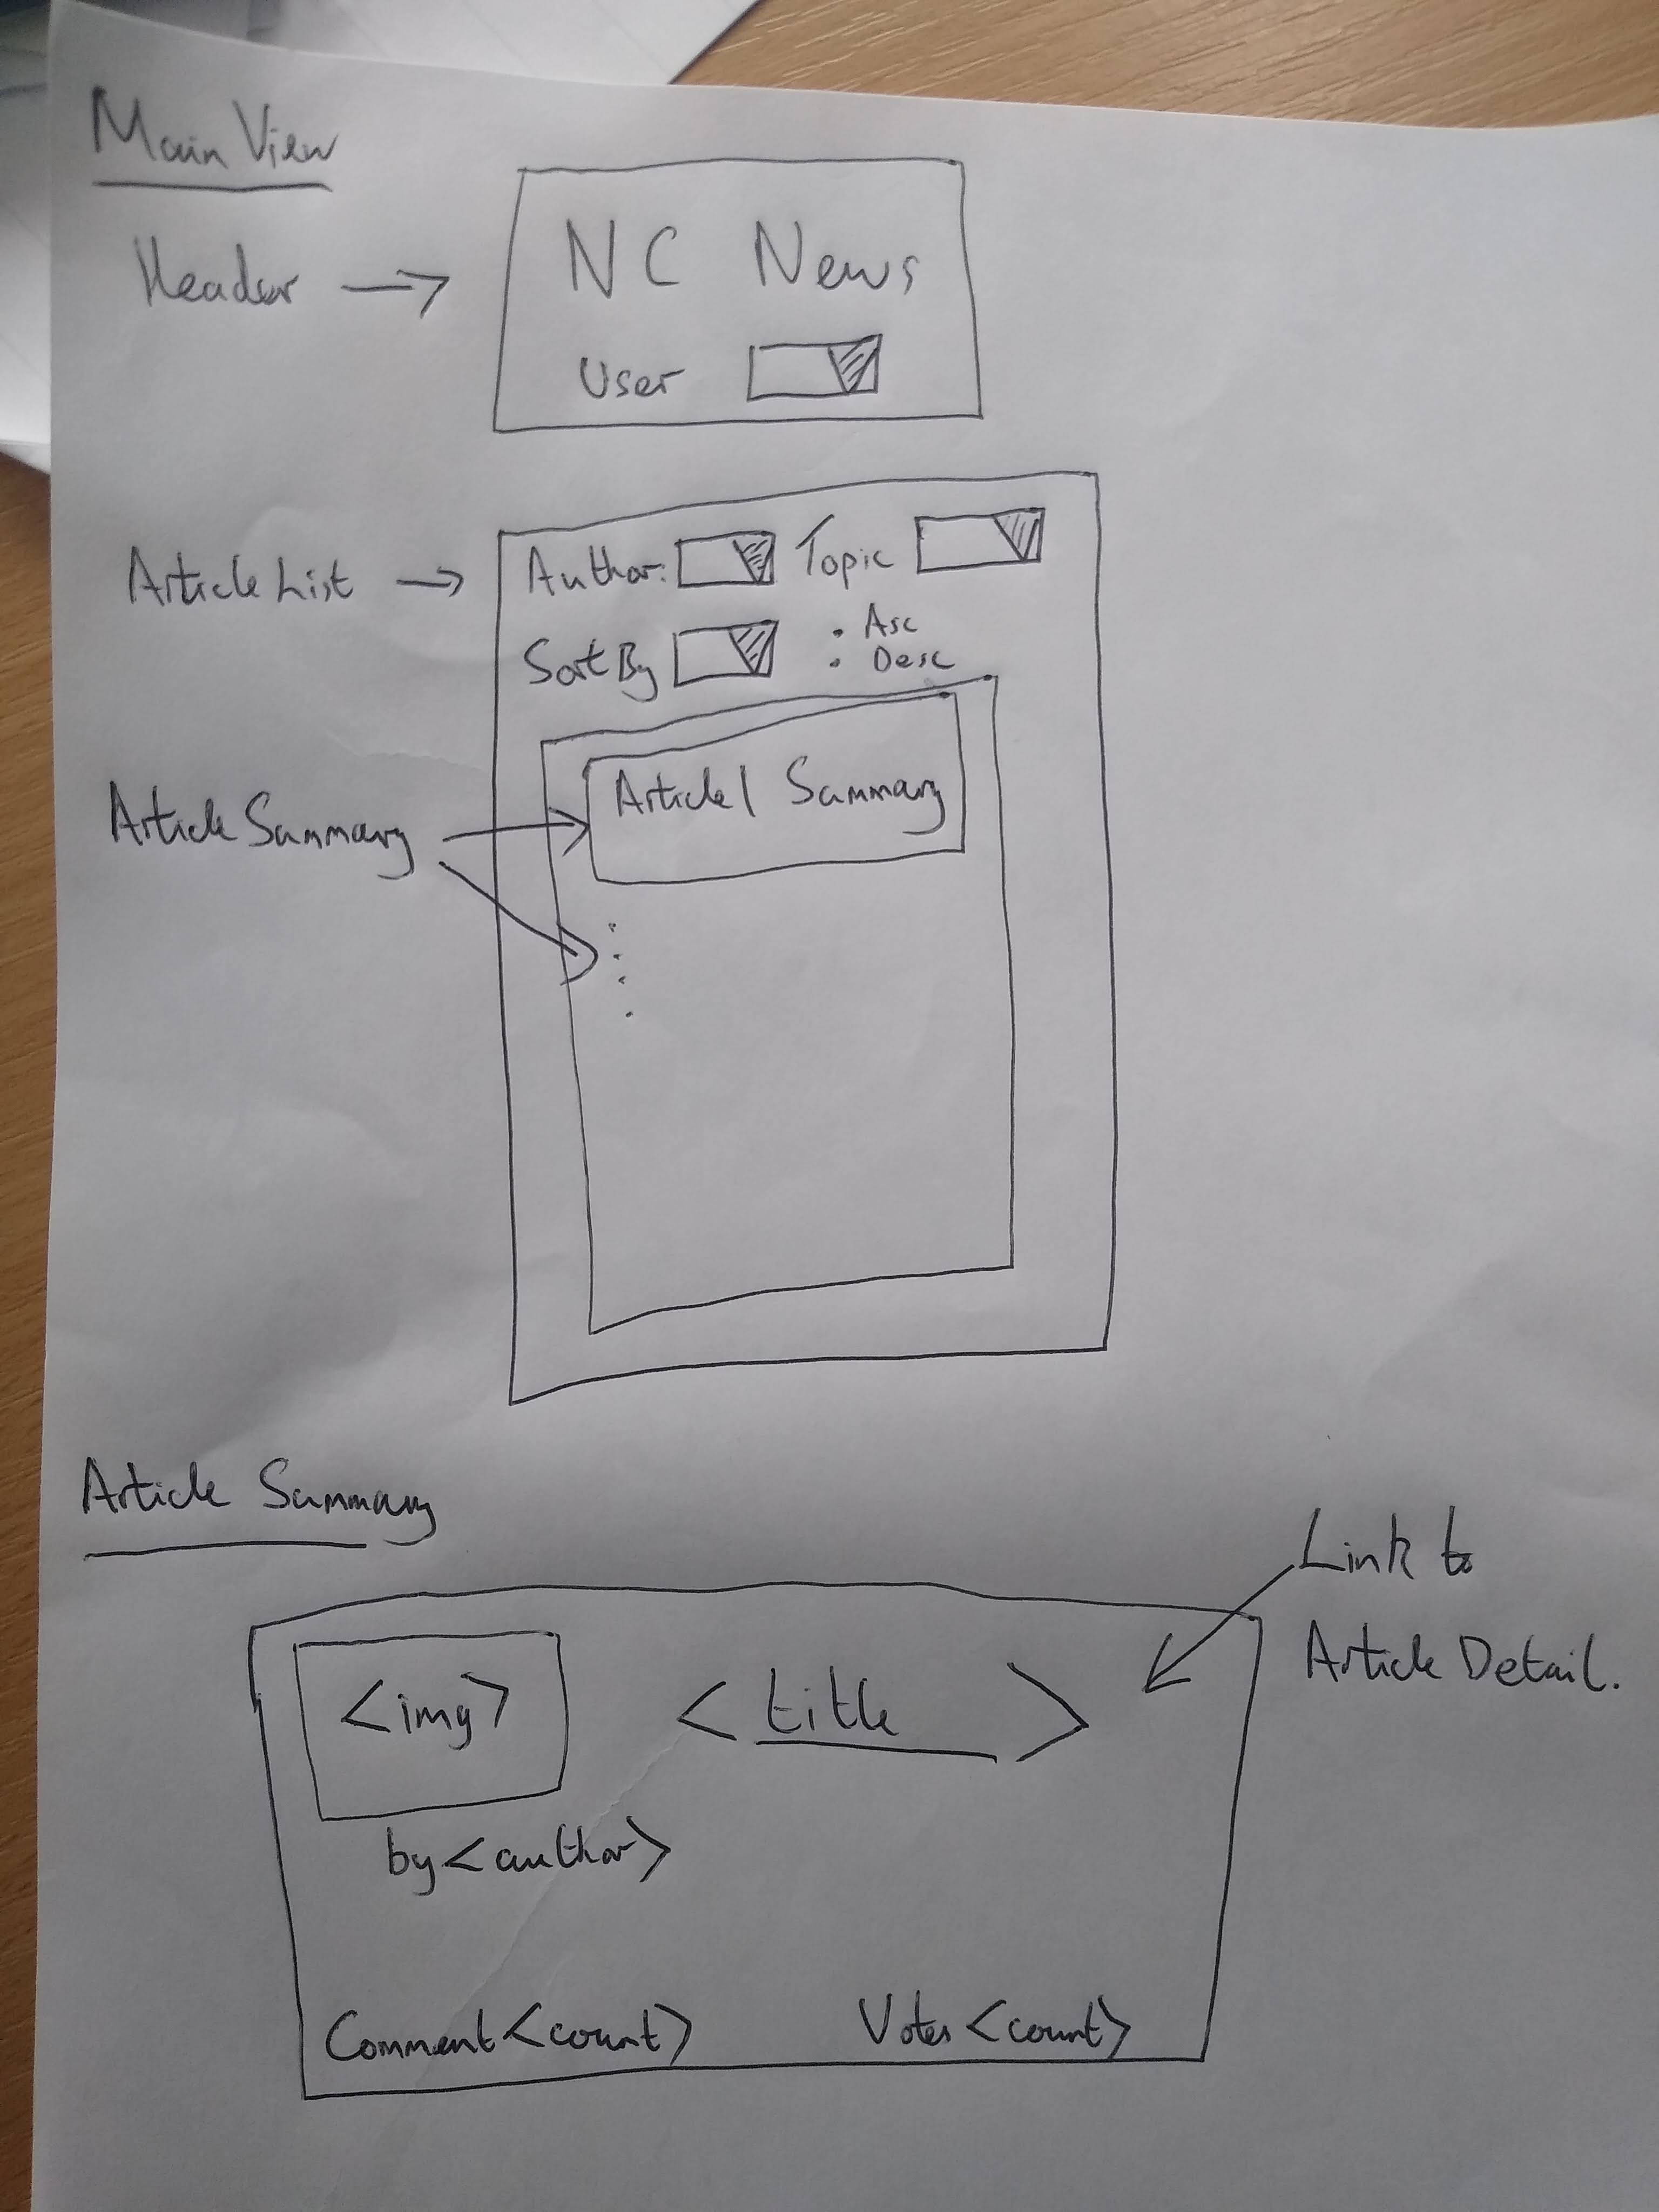 Main View
Header
NC News
User
ArticleList
Author: Topic
SortBy
• Asc
• Desc
ArticleSummary
Article 1 Summary
Article Summary
Link to
Article Detail.
<img>
<title>
by <author>
Comment <count>
Votes <count>